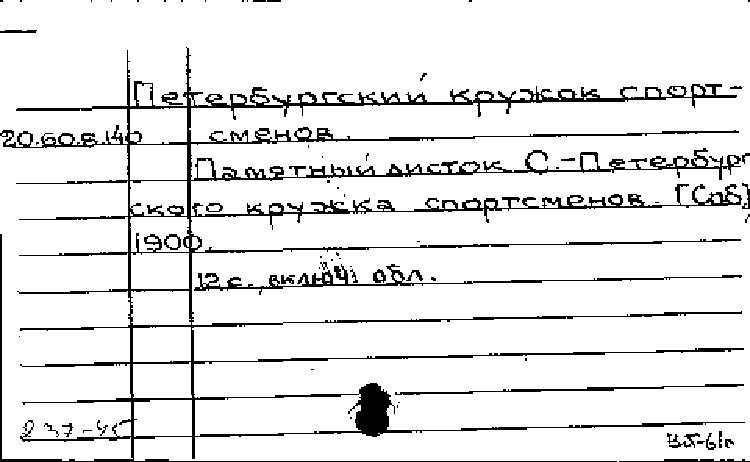 Петербургский кружок спорт-
20.60.8.140 сменов.
Памятный листок С.-Петербург
ского кружка спортсменов. [Спб],
1900.
12 с., включ. обл.
237-45